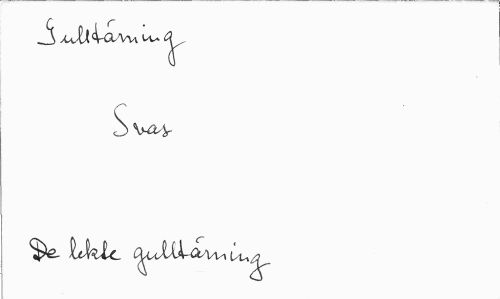 Gulltärning
Svas
De lekte gulltärning